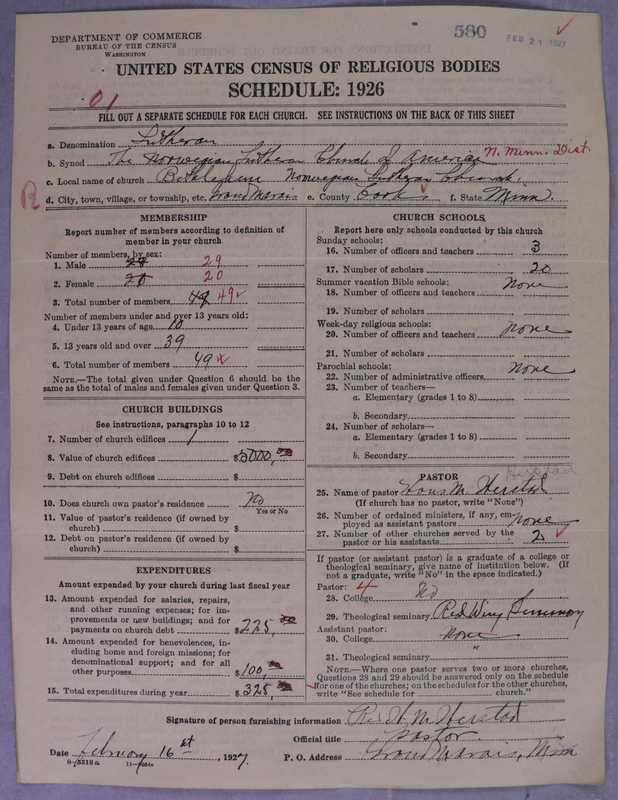 DEPARTMENT OF COMMERCE
BUREAU OF THE CENSUS
WASHINGTON
580
FEB 21 1927
UNITED STATES CENSUS OF RELIGIOUS BODIES
SCHEDULE: 1926
01
FILL OUT A SEPARATE SCHEDULE FOR EACH CHURCH. SEE INSTRUCTIONS ON THE BACK OF THIS SHEET
a. Denomination Lutheran
b. Synod The Norwegian Lutheran Church of America N. Minn. Dist.
c. Local name of church Bethlehem Norwegian Lutheran Church.
R
d. City, town, village, or township, etc. Grand Marais e. County Cook f. State Minn.
MEMBERSHIP
Report number of members according to definition of
member in your church
Number of members, by sex:
1. Male 29
2. Female 20 20
3. Total number of members 49 49
Number of members under and over 13 years old:
4. Under 13 years of age 10
5. 13 years old and over 39
6. Total number of members 49
NOTE.—The total given under Question 6 should be the
same as the total of males and females given under Question 3.
CHURCH BUILDINGS
See instructions, paragraphs 10 to 12
7. Number of church edifices 1
8. Value of church edifices $5000,
9. Debt on church edifices $
10. Does church own pastor's residence No
Yes or No
11. Value of pastor's residence (if owned by
church) $
12. Debt on pastor's residence (if owned by
church) $
EXPENDITURES
Amount expended by your church during last fiscal year
13. Amount expended for salaries, repairs,
and other running expenses; for im-
provements or new buildings; and for
payments on church debt $225,
14. Amount expended for benevolences, in-
cluding home and foreign missions; for
denominational support; and for all
other purposes $100,
15. Total expenditures during year $325,
CHURCH SCHOOLS
Report here only schools conducted by this church
Sunday schools:
16. Number of officers and teachers 3
17. Number of scholars 20
Summer vacation Bible schools: none
18. Number of officers and teachers
19. Number of scholars
Week-day religious schools:
20. Number of officers and teachers none
21. Number of scholars
Parochial schools: none
22. Number of administrative officers
23. Number of teachers—
a. Elementary (grades 1 to 8)
b. Secondary
24. Number of scholars—
a. Elementary (grades 1 to 8)
b. Secondary
PASTOR
Herstad
25. Name of pastor Hans M. Herstad
(If church has no pastor, write "None")
26. Number of ordained ministers, if any, em-
ployed as assistant pastors none
27. Number of other churches served by the
pastor or his assistants 2
If pastor (or assistant pastor) is a graduate of a college or
theological seminary, give name of institution below. (If
not a graduate, write "No" in the space indicated.)
Pastor: 4
28. College No
29. Theological seminary Red Wing Seminary
Assistant pastor:
30. College none
31. Theological seminary "
NOTE.—Where one pastor serves two or more churches,
Questions 28 and 29 should be answered only on the schedule
for one of the churches; on the schedules for the other churches,
write "See schedule for church."
Signature of person furnishing information Rev H. M. Herstad
Official title Pastor
Date February 16 st, 1927. P. O. Address Grand Marais, Minn
8-5518 a